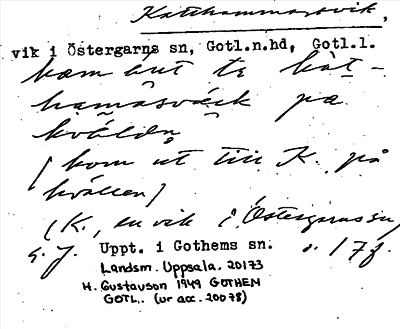 Katthammarsvik,
vik i Östergarns sn, Gotl.n.hd, Gotl.l.
kæm út te kàt-
hamàsvik pæ
kväldn
[kom ut till K. på
kvällen]
(K., en vik i Östergarns sn,
G. J. Uppt. i Gothems sn. s. 17f.
Landsm. Uppsala. 20173
H. Gustavson 1949 GOTHEM
GOTL. (ur acc. 20078)